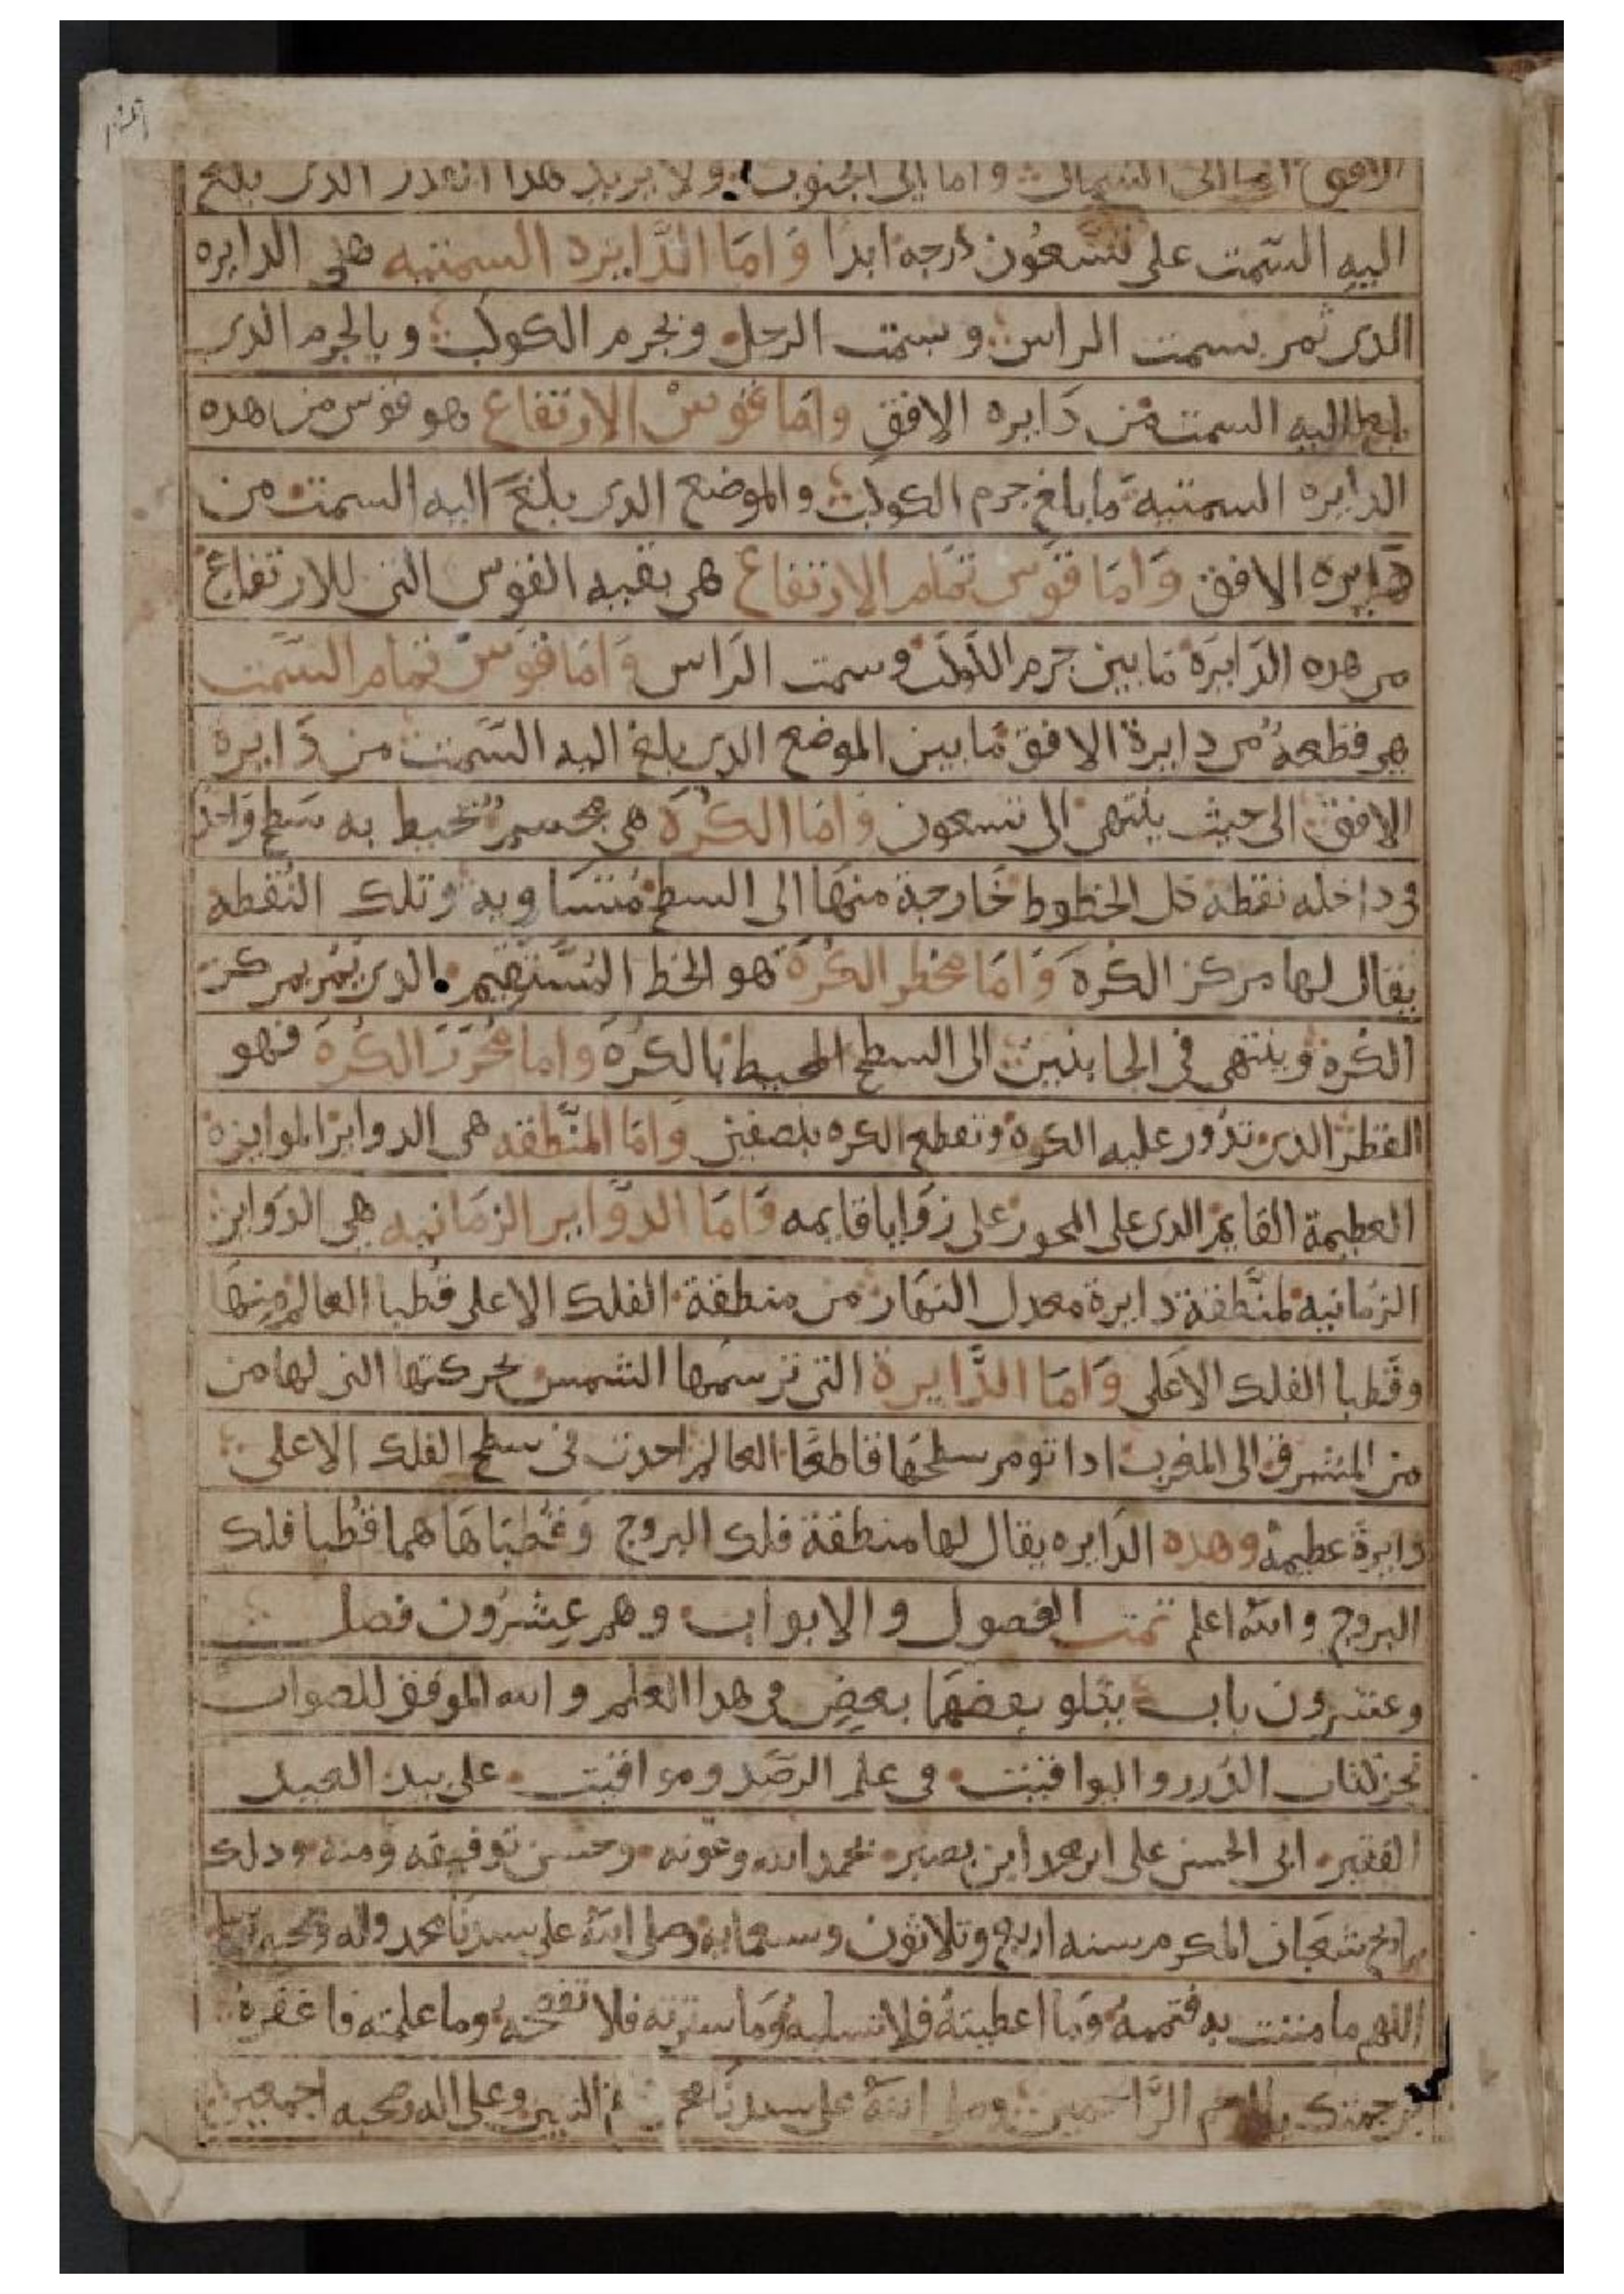 الافق اما الى الشمال واما الى الجنوب ولا يزيد هدا القدر الدى بلغ
اليه السّمت على تسعُون درجة ابدا وَامَا الدَّايره السمتيه هى الدايره
الدى تمر بسمت الراس وسمت الرجل وبجرم الكوكب وبالجرم الدى
اليه السمت من دَايره الافقِ وامَا قوسْ الارتفاع هو قوس من هده
الدايره السمتيه ما بلغ جرم الكوكب والموضع الدى بلغَ اليه السمت من
دَايره الافق وَامَا قوّس تمام الارتفاع هى بقيه القوس التى للارتفاع
من هده الدَايَرَة ما بين جرم الكوكب وسمت الرَاس وَامَا قوَسْ تمام السَّمت
هى قطعةُ من دايرة الافق ما بين الموضع الدى بلغ اليه السَّمت من دَايرة
الافق الى حيث ينتهى الى تسعون وَامَا الكُرَة هى مجسم تُحيط به سَطح وَاحد
فى داخله نقطه كل الخطوط خَارجة منهَا الى السطح مُتسَاويه وتلك النُقطه
يقال لها مركز الكُرة وَامَا قطر الكُرَة هو الخط المُسْتقِيم الدى يَمُر بمركز
الكُرة وينتهى فى الجانبين الى السطح المحيط بالكُرَة واما مُحوَر الكُرَة فهو
القطر الدى تدُور عليه الكرة وتقطع الكره بنصفين وَامَا المنَّطقه هى الدواير الموايزة
العظيمة القايم الدى على المحور على زوَايا قايمه وَامَا الدوَّاير الزمَانيه هى الدوَاير
الزمَانيه لمنَّطقة دايرة معدل النهَار من منطقة الفلك الاعلى قُطبا العالم منهَا
وقُطبا الفلك الاعَلى وَامَا الدَّايرة التى ترسمُها الشمس بحركتها التى لها من
من المشرق الى المغرب ادا توم سطحهَا قاطعًا العالم احدث فى سطح الفلك الاعلى
دَايرةَ عظيمةُ وهده الدَايره يقال لها منطقة فلك البروج وَقُطبَاهَا هما قُطبا فلك
البروج والله اعلم تمت الفصول والابواب وهم عِشرُون فصل
وعشرون باب يتلو بعضهَا بعضٍ فى هدا العلم والله الموفق للصواب
نجز كتاب الدُرر واليواقيت فى علم الرصَد ومواقيت على يد العبد
الفقير ابى الحسن على ابن نصير بحمد الله وعونه وحسن توفيقه ومنه ودلك
بتاريخ شعبان المكرم سنه اربع وتلاثون وسبعماية وصلى الله على سيدنَا محمد واله وصحبه
اللهم ما مننت به فتممهُ وَمَا اعطيتهُ فلا تسلبهُ وَمَا سترته فلا تفضحه وما علمته فاغفرهُ
برحمتك يا ارحم الرَّاحمين وصلى اللهُ على سيدنَا النبيين وعلى اله وصحبه اجمعين